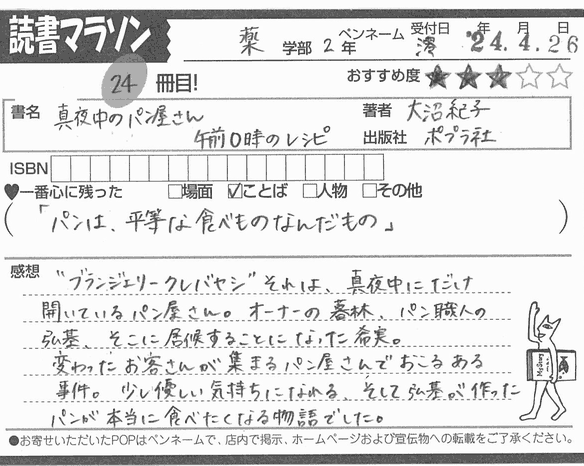 読書マラソン
薬 学部 2年 ペンネーム 澪 受付日 '24年.4月.26日
24 冊目!
おすすめ度 ★★★☆☆
書名 真夜中のパン屋さん
午前0時のレシピ
著者 大沼紀子
出版社 ポプラ社
ISBN
♥一番心に残った □場面 ☑ことば □人物 □その他
(「パンは、平等な食べものなんだもの」)
感想 "ブランジェリークレバヤシ"それは、真夜中にだけ
開いているパン屋さん。オーナーの暮林、パン職人の
弘基、そこに居候することになった希実。
変わったお客さんが集まるパン屋さんでおこるある
事件。少し優しい気持ちになれる、そして弘基が作った
パンが本当に食べたくなる物語でした。
Mystery
●お寄せいただいたPOPはペンネームで、店内で掲示、ホームページおよび宣伝物への転載をご了承ください。